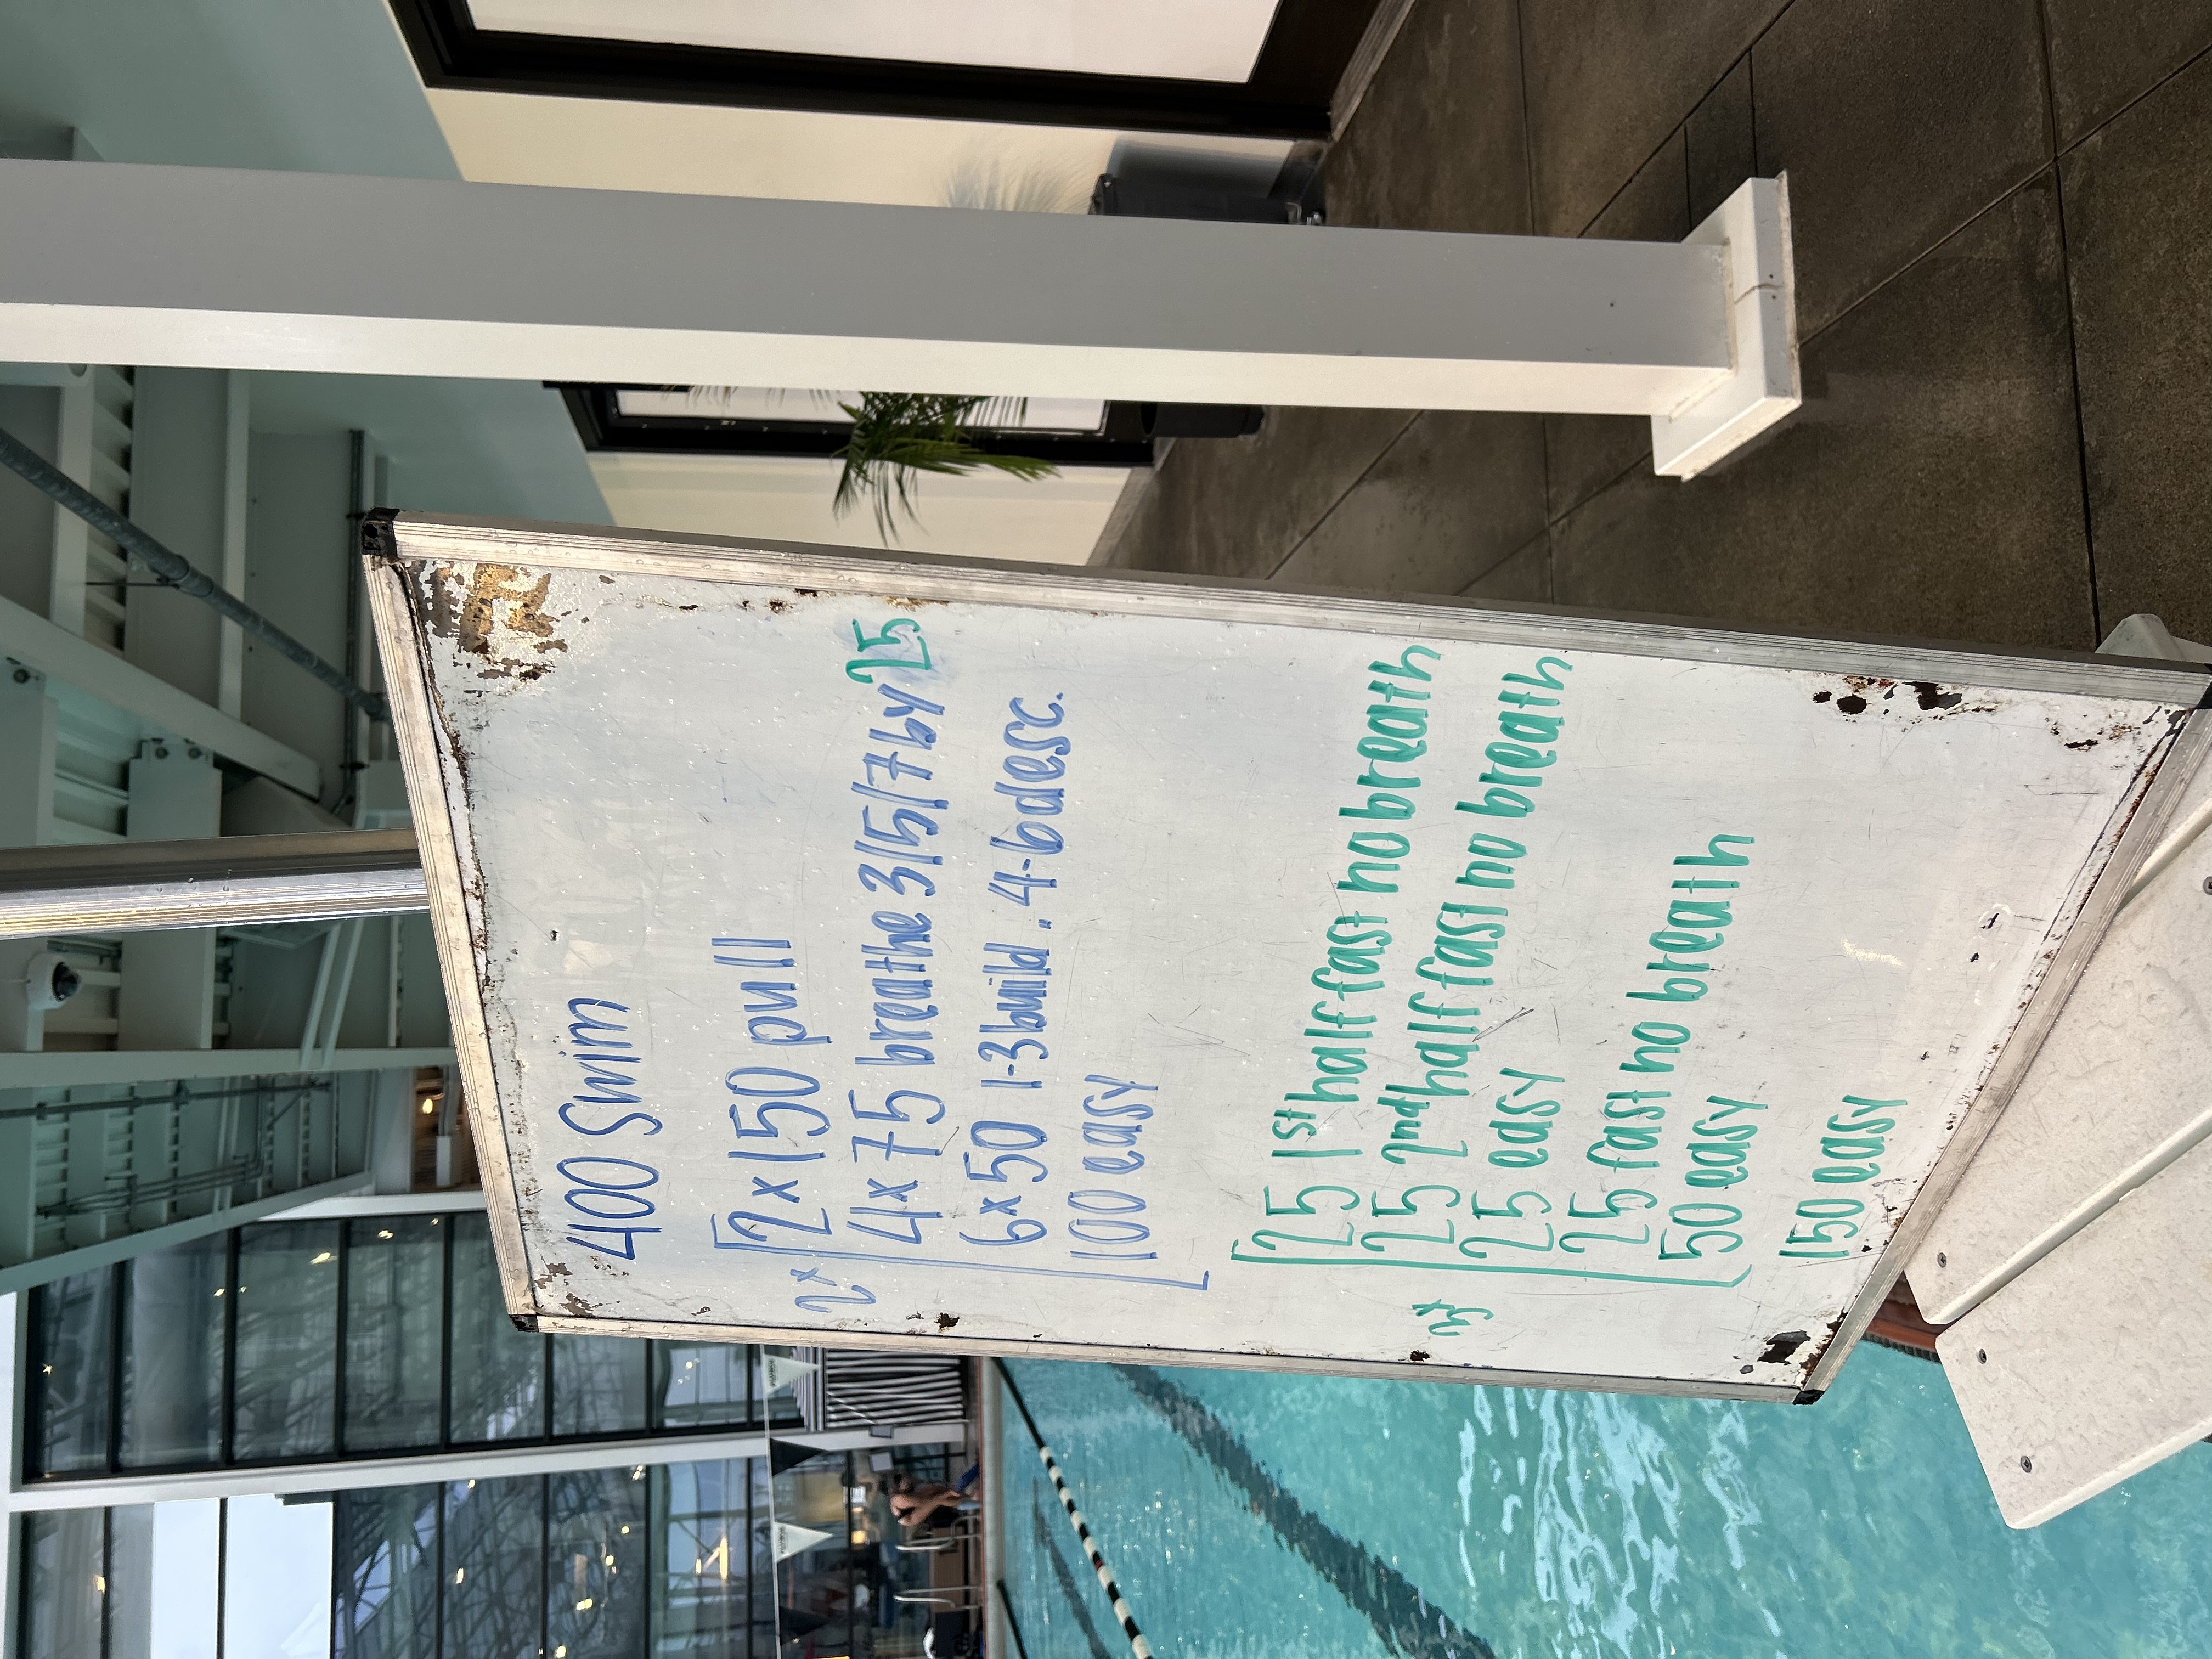 400 Swim
2x 2x150 pull
4x75 breathe 3/5/7 by 25
6x50 1-3 build . 4-6 desc.
100 easy
25 1st half fast no breath
25 2nd half fast no breath
25 easy
25 fast no breath
50 easy
150 easy